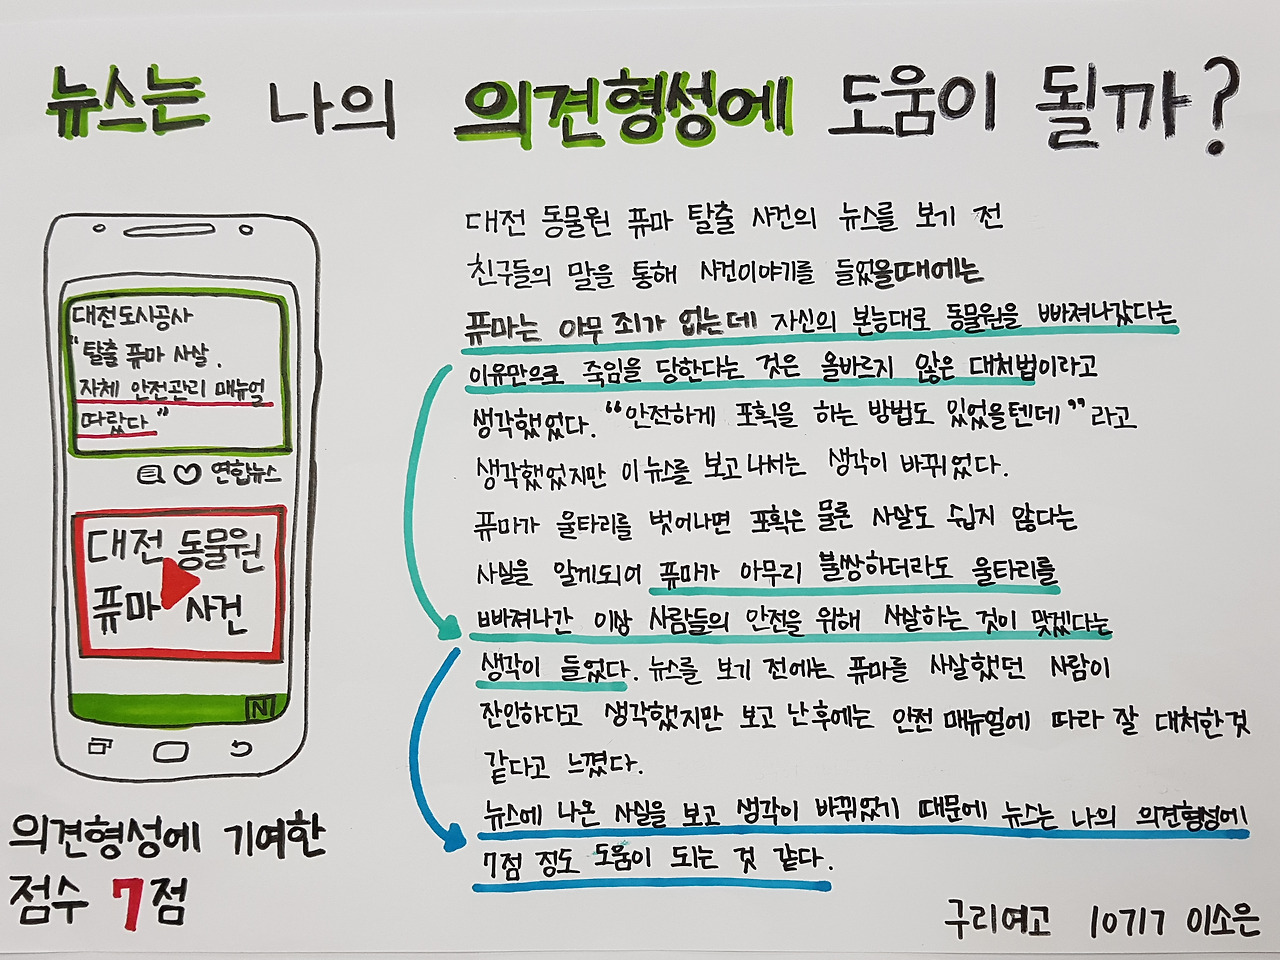 뉴스는 나의 의견형성에 도움이 될까?
대전도시공사
"탈출 퓨마 사살.
자체 안전관리 매뉴얼
따랐다"
연합뉴스
대전 동물원
퓨마 사건
N
의견형성에 기여한
점수 7점
대전 동물원 퓨마 탈출 사건의 뉴스를 보기 전
친구들의 말을 통해 사건이야기를 들었을때에는
퓨마는 아무 죄가 없는데 자신의 본능대로 동물원을 빠져나갔다는
이유만으로 죽임을 당한다는 것은 올바르지 않은 대처법이라고
생각했었다. "안전하게 포획을 하는 방법도 있었을텐데"라고
생각했었지만 이 뉴스를 보고나서는 생각이 바뀌었다.
퓨마가 울타리를 벗어나면 포획은 물론 사살도 쉽지 않다는
사실을 알게되어 퓨마가 아무리 불쌍하더라도 울타리를
빠져나간 이상 사람들의 안전을 위해 사살하는 것이 맞겠다는
생각이 들었다. 뉴스를 보기 전에는 퓨마를 사살했던 사람이
잔인하다고 생각했지만 보고 난 후에는 안전 매뉴얼에 따라 잘 대처한것
같다고 느꼈다.
뉴스에 나온 사실을 보고 생각이 바뀌었기 때문에 뉴스는 나의 의견형성에
7점 정도 도움이 되는 것 같다.
구리여고 10717 이소은